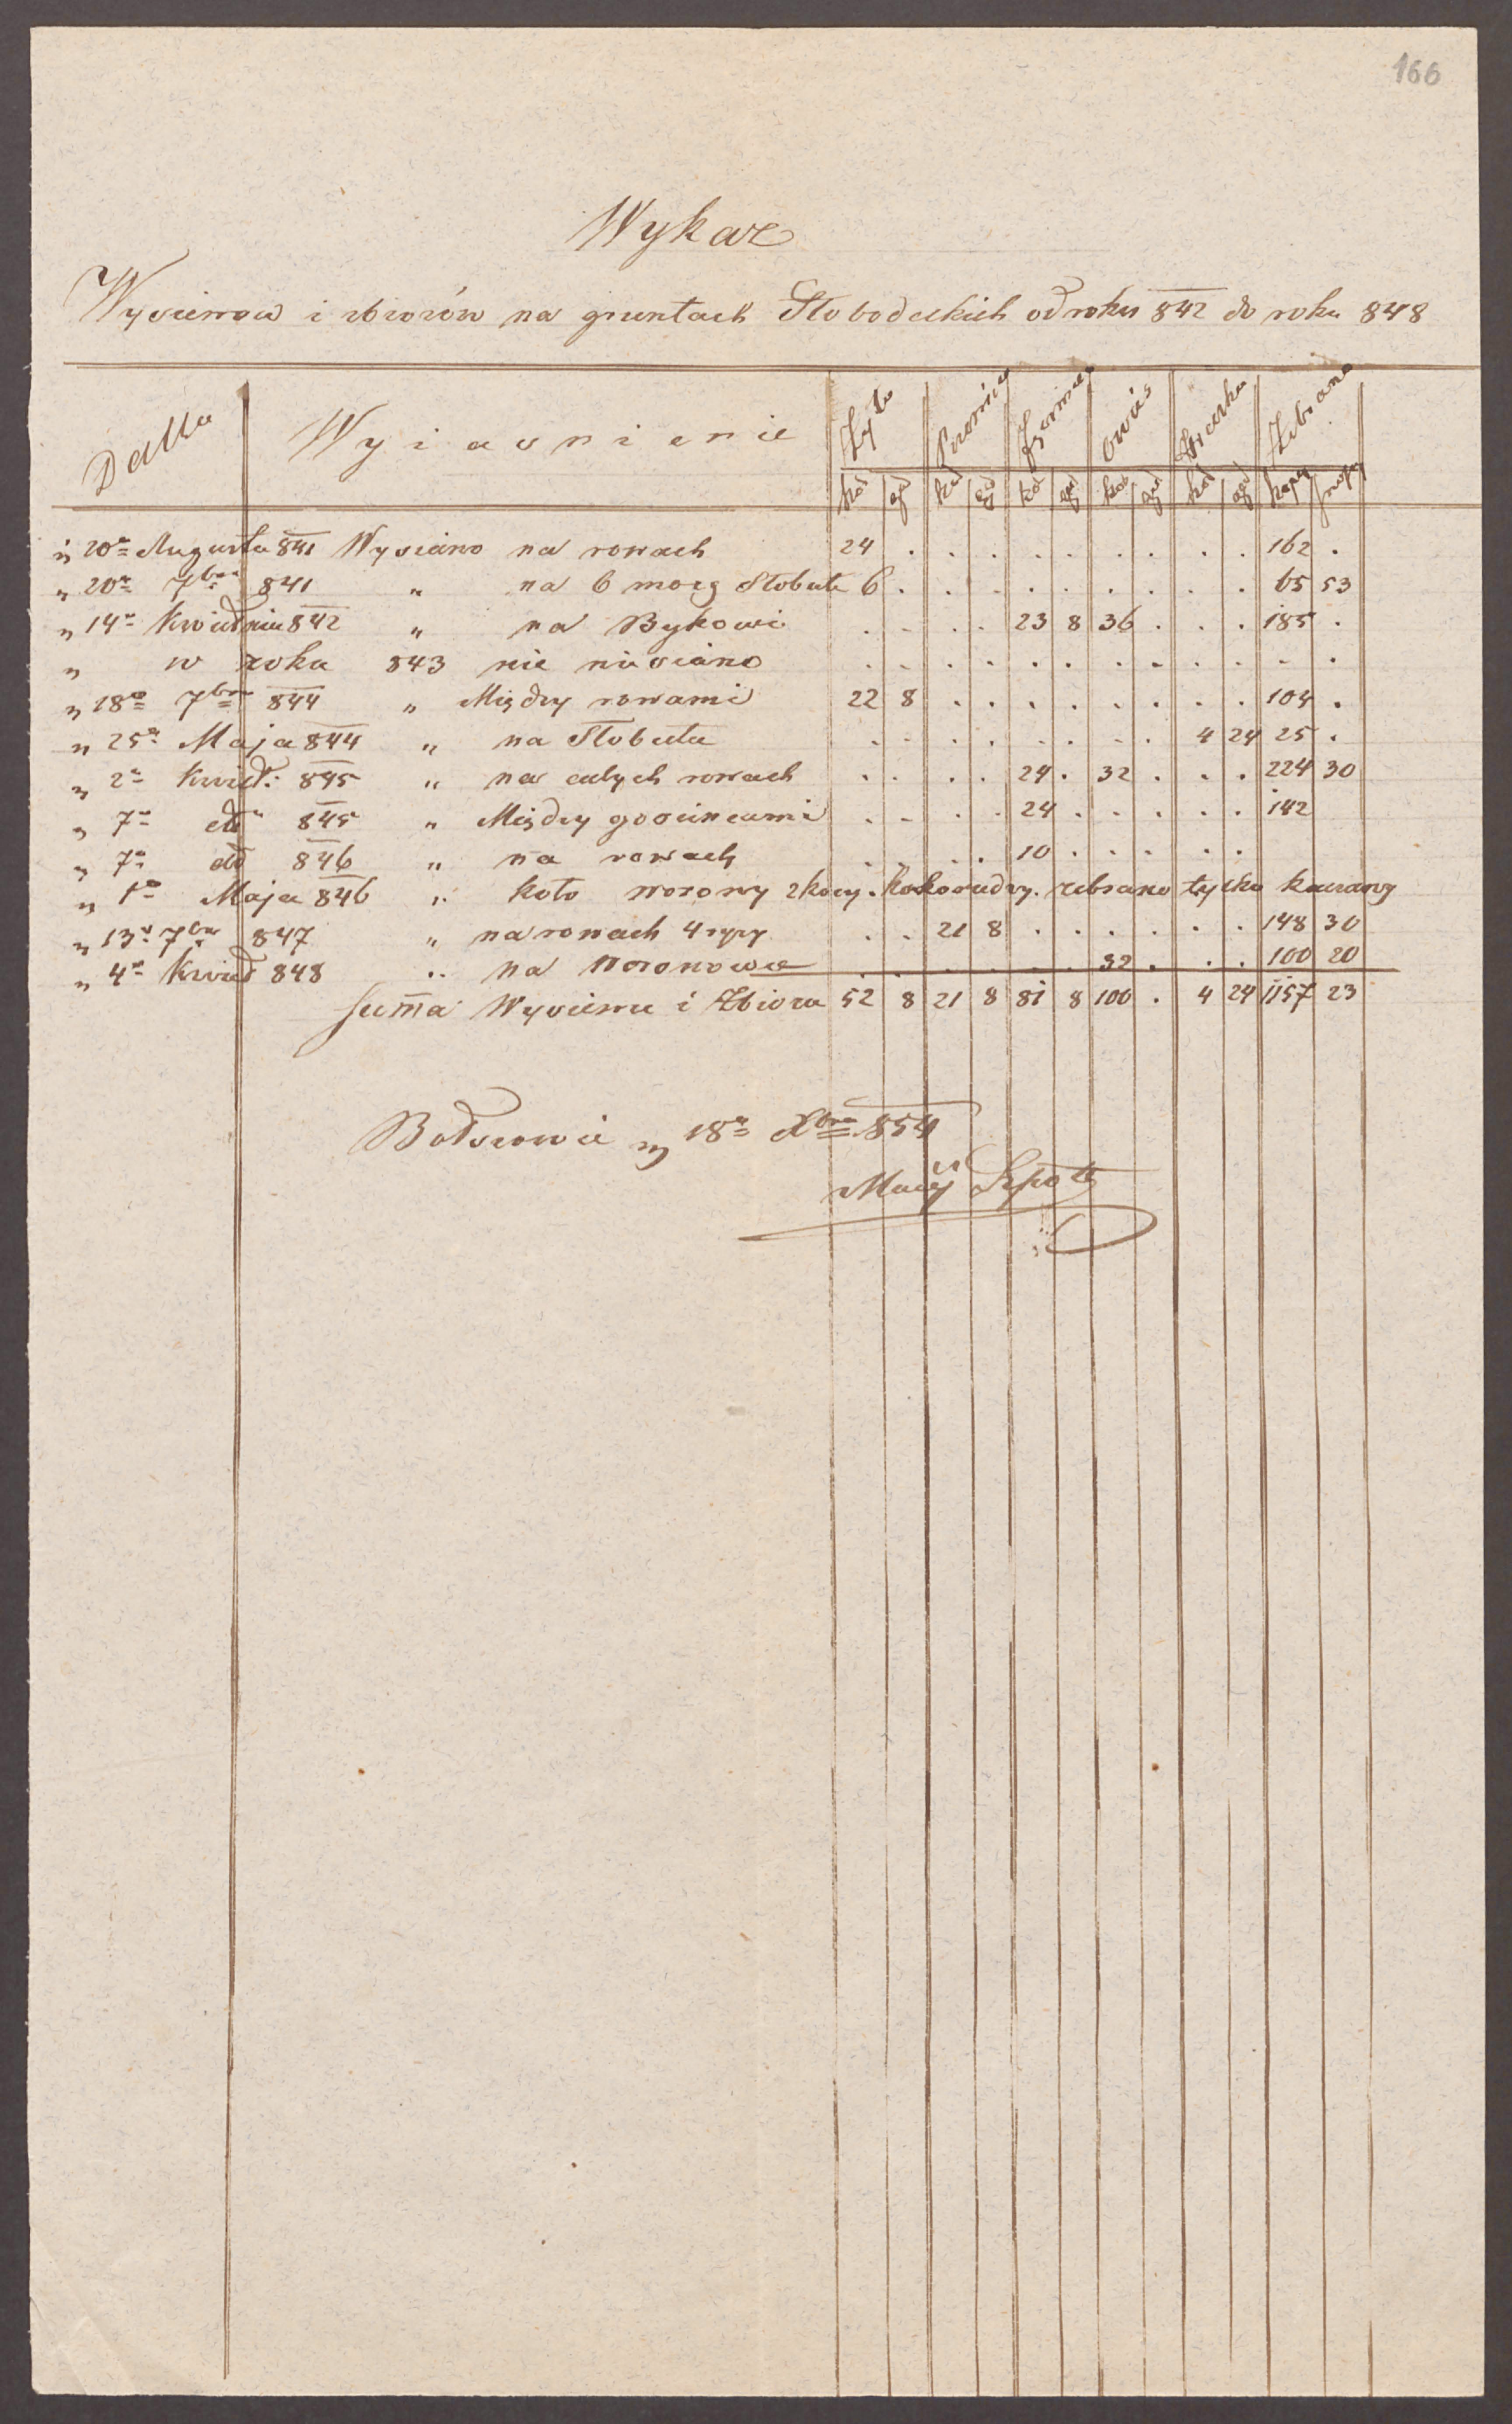 166
Wykaz
Wysiewow i zbiorów na gruntach Słobodeckich od roku 842 do roku 848
Datta Wyiasnienie Żyto Pszenica Jęczmień Owies Hreczka Zebrano
kor gar kor gar kor gar kor gar kor gar kopy snopy
" 20º Augusta 841 Wysiano na rowach 24 . . . . . . . . . 162 .
" 20º 7bra 841 " na 6 morg Słobuta 6 . . . . . . . . . 65 53
" 14º Kwietnia 842 " na Bykowi . . . . 23 8 36 . . . 185 .
" w roku 843 nic nie siano . . . . . . . . . . . .
" 18º 7bra 844 " Między rowami 22 8 . . . . . . . . 104 .
" 25º Maja 844 " na Słobuta . . . . . . . . 4 24 25 .
" 2º Kwiet: 845 " na całych rowach . . . . 24 . 32 . . . 224 30
" 7º dtto 845 " Między gościncami . . . . 24 . . . . . 142
" 7º dtto 846 " na rowach . . . . 10 . . . . .
" 1º Maja 846 " koło worony 2 korcy kokorudzy zebrano tylko kaczany
" 13º 7bra 847 " na rowach 4 . . 21 8 . . . . . . 148 30
" 4º Kwiet 848 " na Woronowce . . . . . . 32 . . . 100 20
Summa Wysiewu i Zbioru 52 8 21 8 81 8 100 . 4 24 1157 23
Bołszowie " 18º Xbra 854
Maciej